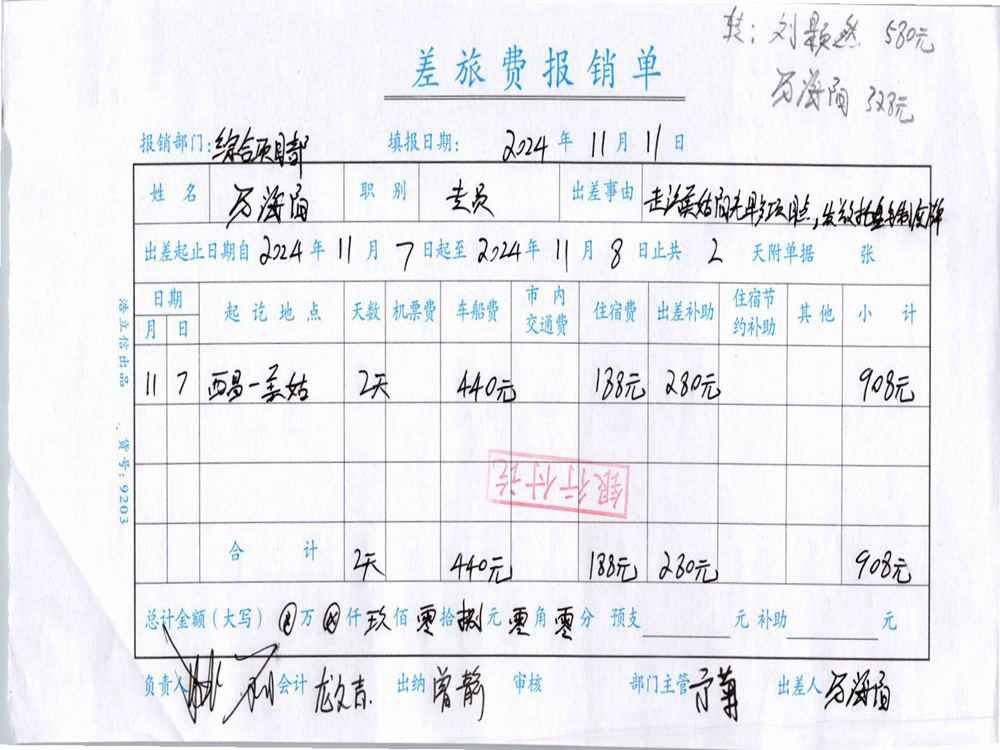 转：刘颢然 580元
差旅费报销单
328元
报销部门：综合项目部 填报日期： 2024 年 11 月 11 日
姓名 职别 专员 出差事由
出差起止日期自 2024 年 11 月 7 日起至 2024 年 11 月 8 日止共 2 天附单据 张
日期 起讫地点 天数 机票费 车船费 市内交通费 住宿费 出差补助 住宿节约补助 其他 小计
月 日
11 7 西昌—美姑 2天 440元 188元 280元 908元
银行付讫
合计 2天 440元 188元 280元 908元
总计金额（大写） ⊗万 ⊗仟 玖佰 零拾 捌元 零角 零分 预支 元 补助 元
负责人 会计 龙文吉 出纳 曾静 审核 部门主管 出差人
浩立信出品 货号：9203